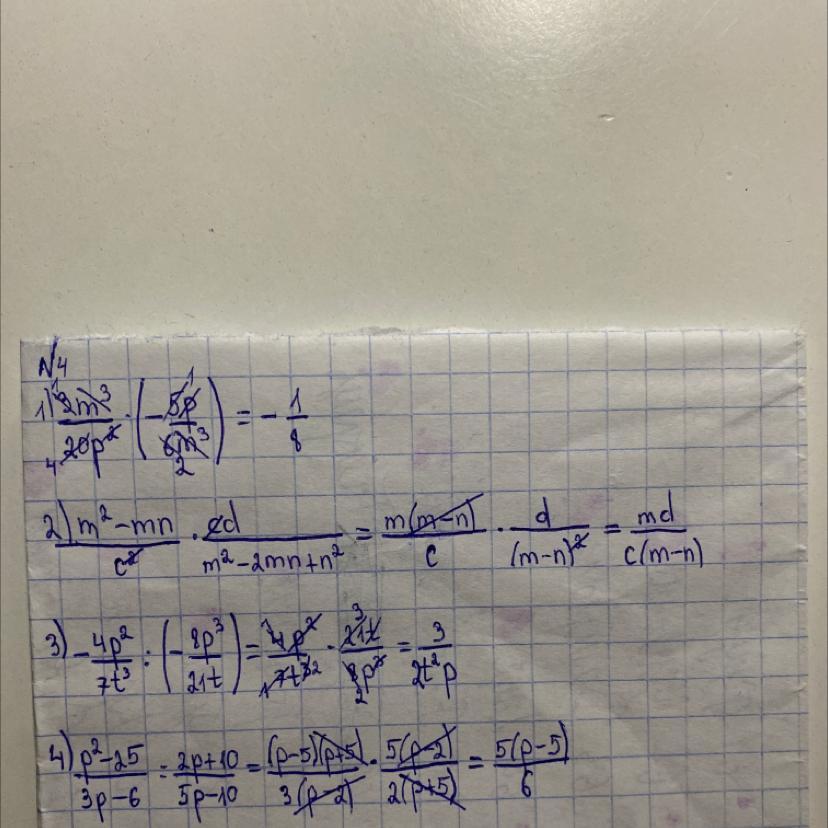 №4
1) 2m³/20p² · (−5p/6m³) = −1/8
2) m²−mn/c² · cd/m²−2mn+n² = m(m−n)/c · d/(m−n)² = md/c(m−n)
3) −4p²/7t³ : (−8p³/21t) = 4p²/7t³ · 21t/8p³ = 3/2t²p
4) p²−25/3p−6 : 2p+10/5p−10 = (p−5)(p+5)/3(p−2) · 5(p−2)/2(p+5) = 5(p−5)/6